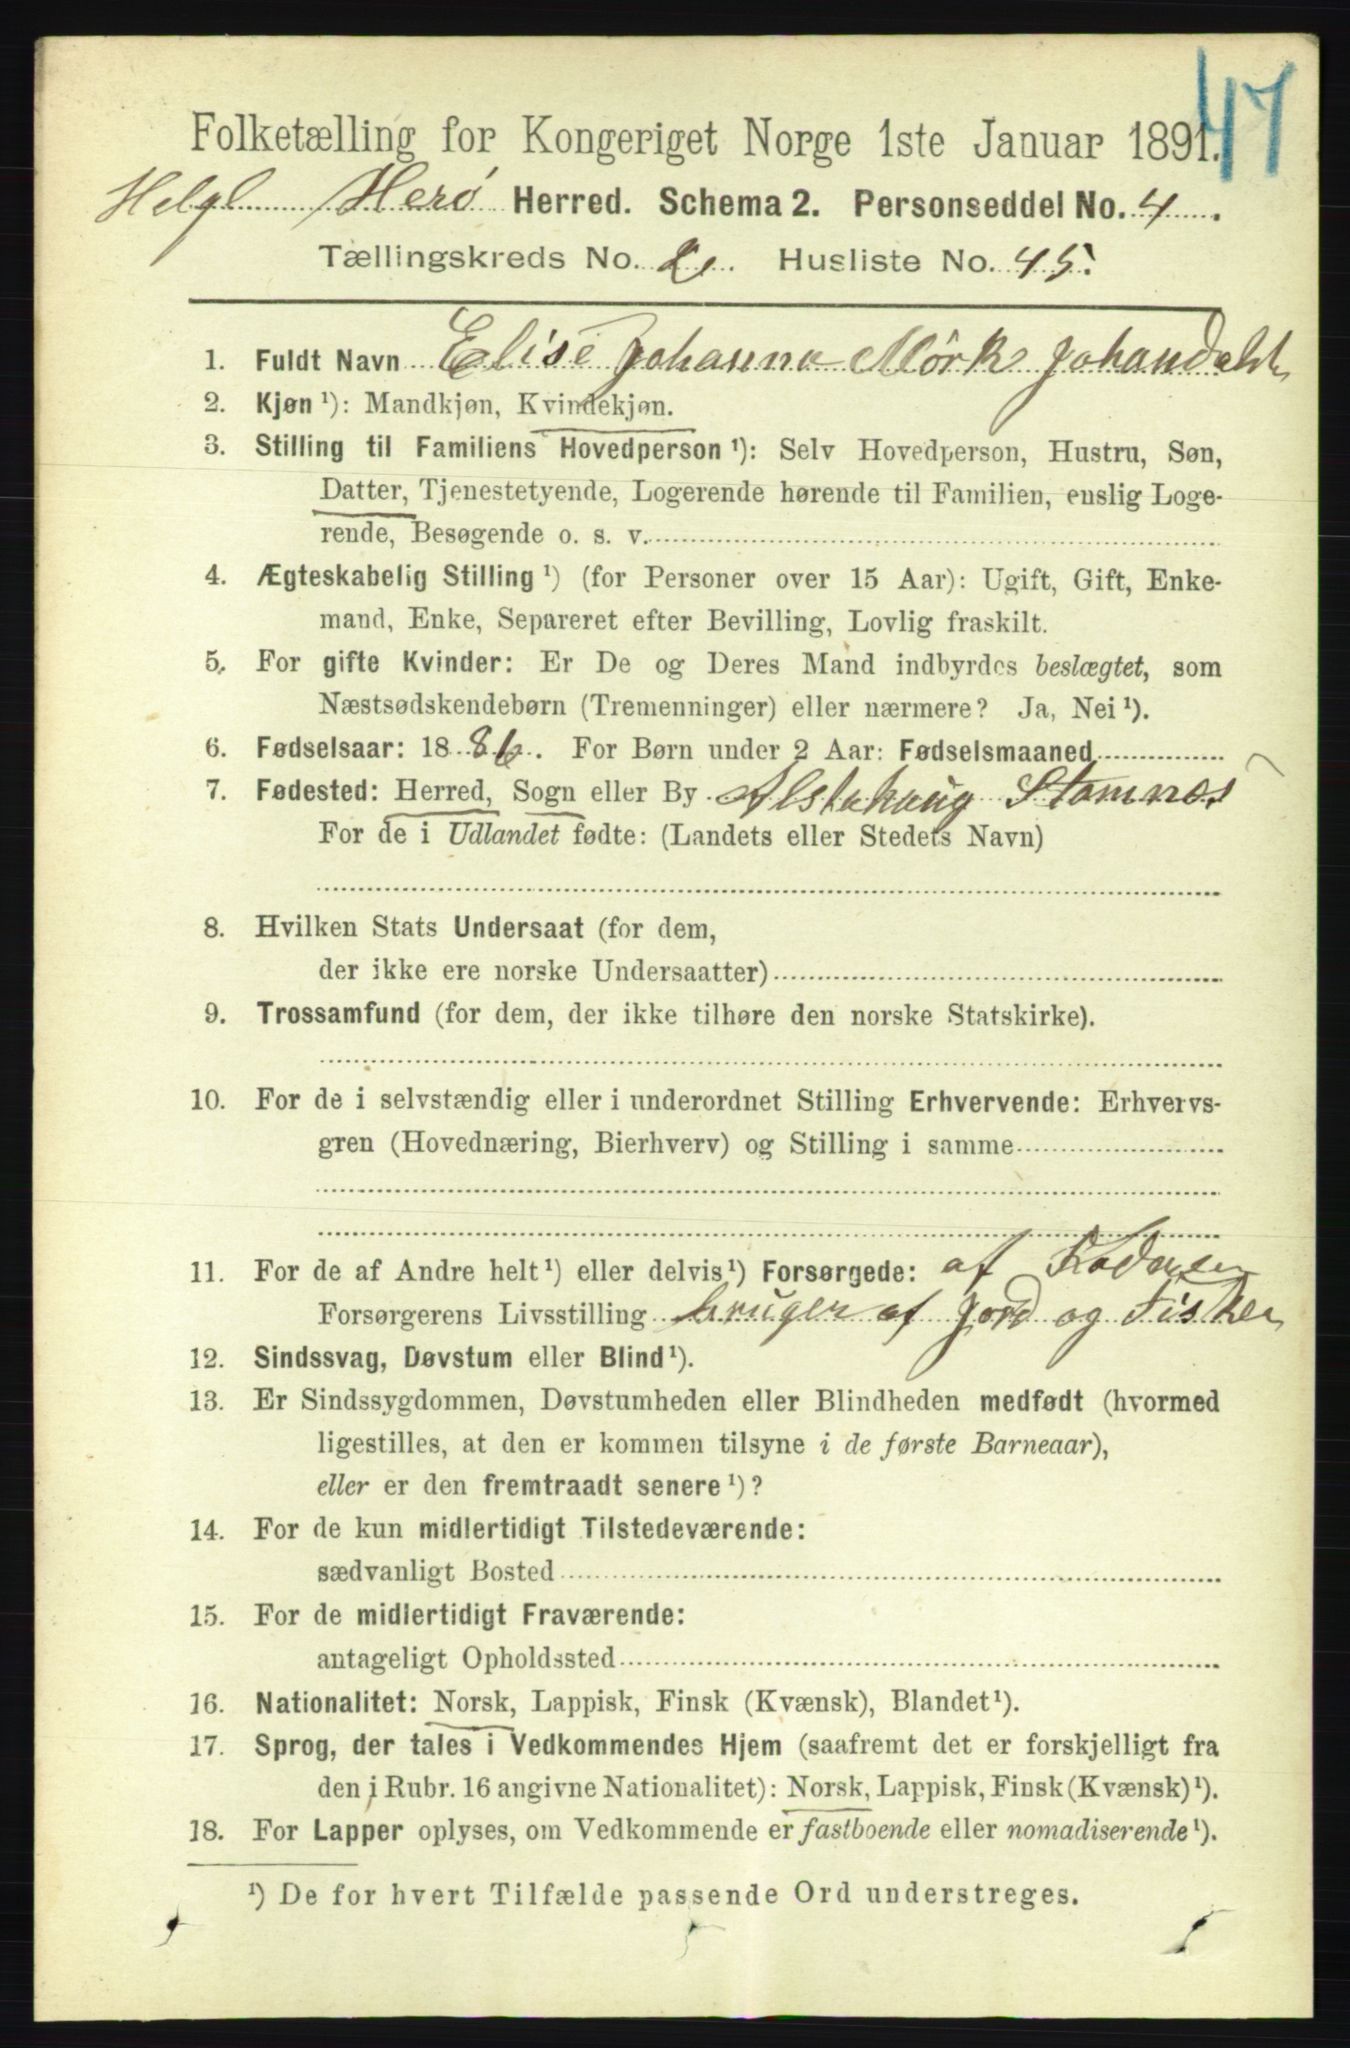 47
Folketælling for Kongeriget Norge 1ste Januar 1891.
Helgl Herø Herred. Schema 2. Personseddel No. 4.
Tællingskreds No. 2. Husliste No. 45.
1. Fuldt Navn Elise Johanna Mørk Johansdatr
2. Kjøn ¹): Mandkjøn, Kvindekjøn.
3. Stilling til Familiens Hovedperson ¹): Selv Hovedperson, Hustru, Søn,
Datter, Tjenestetyende, Logerende hørende til Familien, enslig Loge-
rende, Besøgende o. s. v.
4. Ægteskabelig Stilling ¹) (for Personer over 15 Aar): Ugift, Gift, Enke-
mand, Enke, Separeret efter Bevilling, Lovlig fraskilt.
5. For gifte Kvinder: Er De og Deres Mand indbyrdes beslægtet, som
Næstsødskendebørn (Tremenninger) eller nærmere? Ja, Nei ¹).
6. Fødselsaar: 1886. For Børn under 2 Aar: Fødselsmaaned
7. Fødested: Herred, Sogn eller By Alstahaug Stamnes
For de i Udlandet fødte: (Landets eller Stedets Navn)
8. Hvilken Stats Undersaat (for dem,
der ikke ere norske Undersaatter)
9. Trossamfund (for dem, der ikke tilhøre den norske Statskirke).
10. For de i selvstændig eller i underordnet Stilling Erhvervende: Erhvervs-
gren (Hovednæring, Bierhverv) og Stilling i samme
11. For de af Andre helt ¹) eller delvis ¹) Forsørgede: af Faderen
Forsørgerens Livsstilling bruger af Jord og Fisker
12. Sindssvag, Døvstum eller Blind ¹).
13. Er Sindssygdommen, Døvstumheden eller Blindheden medfødt (hvormed
ligestilles, at den er kommen tilsyne i de første Barneaar),
eller er den fremtraadt senere ¹)?
14. For de kun midlertidigt Tilstedeværende:
sædvanligt Bosted
15. For de midlertidigt Fraværende:
antageligt Opholdssted
16. Nationalitet: Norsk, Lappisk, Finsk (Kvænsk), Blandet ¹).
17. Sprog, der tales i Vedkommendes Hjem (saafremt det er forskjelligt fra
den i Rubr. 16 angivne Nationalitet): Norsk, Lappisk, Finsk (Kvænsk) ¹).
18. For Lapper oplyses, om Vedkommende er fastboende eller nomadiserende ¹).
¹) De for hvert Tilfælde passende Ord understreges.